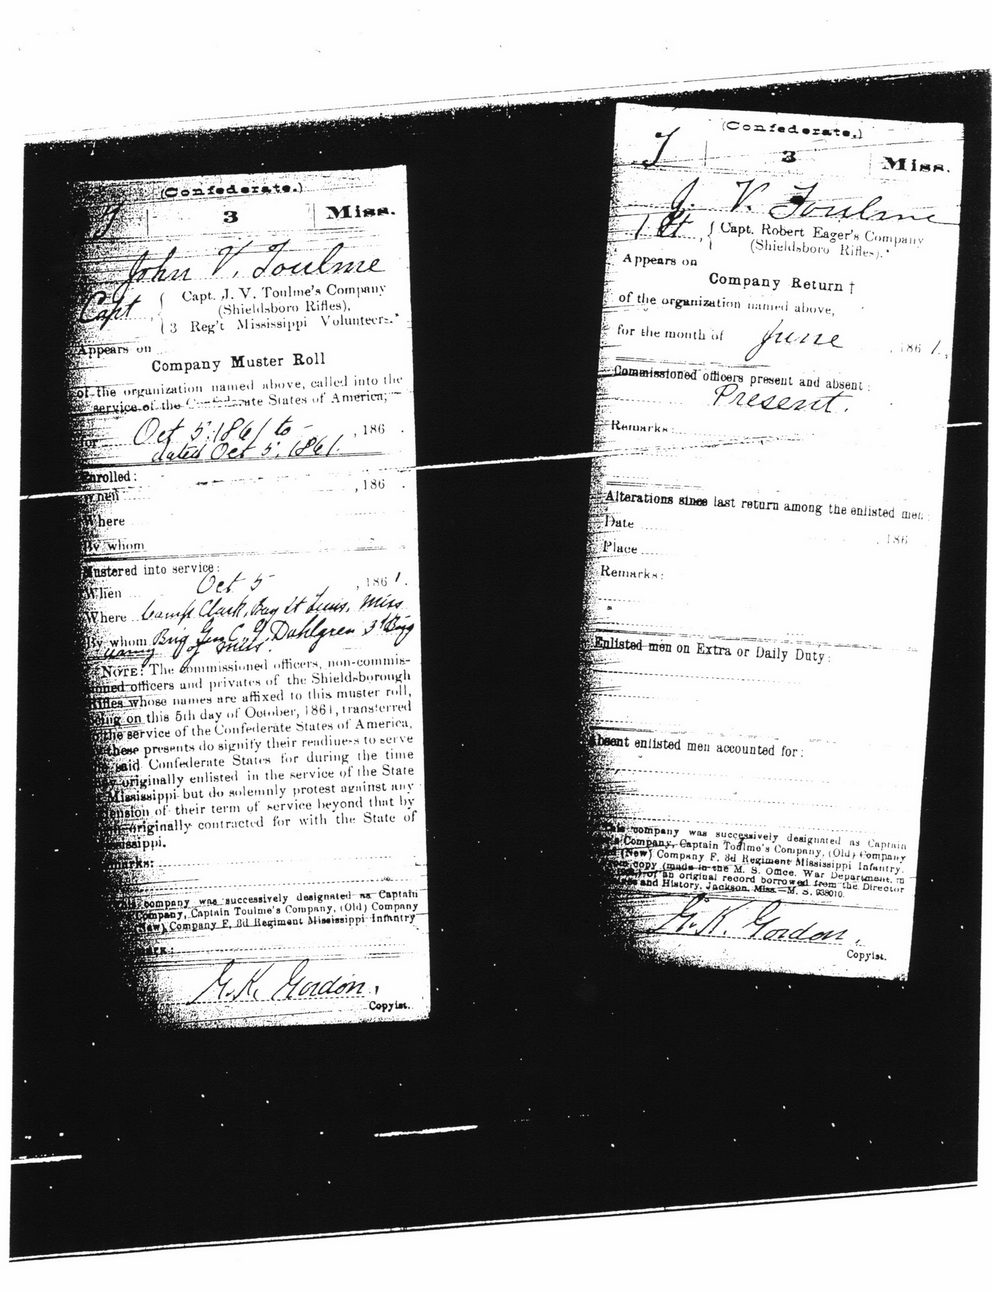 (Confederate.)
T 3 Miss.
John V. Toulme
Capt { Capt. J. V. Toulme's Company
(Shieldsboro Rifles),
3 Reg't Mississippi Volunteers.*
Appears on
Company Muster Roll
of the organization named above, called into the
service of the Confederate States of America,
for Oct 5, 1861 to - , 186 .
dated Oct 5, 1861.
Enrolled:
When , 186 .
Where
By whom
Mustered into service:
When Oct 5 , 1861.
Where Camp Clark, Bay St Louis, Miss
By whom Brig Gen C. G. Dahlgren 3d Brig
army of Miss.
NOTE: The commissioned officers, non-commis-
officers and privates of the Shieldsborough
Rifles whose names are affixed to this muster roll,
on this 5th day of October, 1861, transferred
the service of the Confederate States of America,
these presents do signify their readiness to serve
said Confederate States for during the time
originally enlisted in the service of the State
Mississippi but do solemnly protest against any
of their term of service beyond that by
originally contracted for with the State of
company was successively designated as Captain
Company, Captain Toulme's Company, (Old) Company
(New) Company F, 3d Regiment Mississippi Infantry
G. K. Gordon,
Copyist.
(Confederate.)
T 3 Miss.
J. V. Toulme
1 Lt { Capt. Robert Eager's Company
(Shieldsboro Rifles).*
Appears on
Company Return †
of the organization named above,
for the month of June , 1861.
Commissioned officers present and absent:
Present.
Remarks:
Alterations since last return among the enlisted men:
Date , 186
Place
Remarks:
Enlisted men on Extra or Daily Duty:
Absent enlisted men accounted for:
This company was successively designated as Captain
Company, Captain Toulme's Company, (Old) Company
(New) Company F, 3d Regiment Mississippi Infantry.
copy (made in the M. S. Office, War Department, in
of an original record borrowed from the Director
and History, Jackson, Miss.—M. S. 938010.
G. K. Gordon,
Copyist.